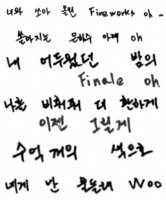 너와 쏘아 올린 Fireworks oh
쏟아지는 은하수 아래 oh
내 어두웠던 밤의
Finale oh
나를 비춰줘 더 환하게
이젠 그렇게
수억 개의 색으로
네게 난 물들래 Woo